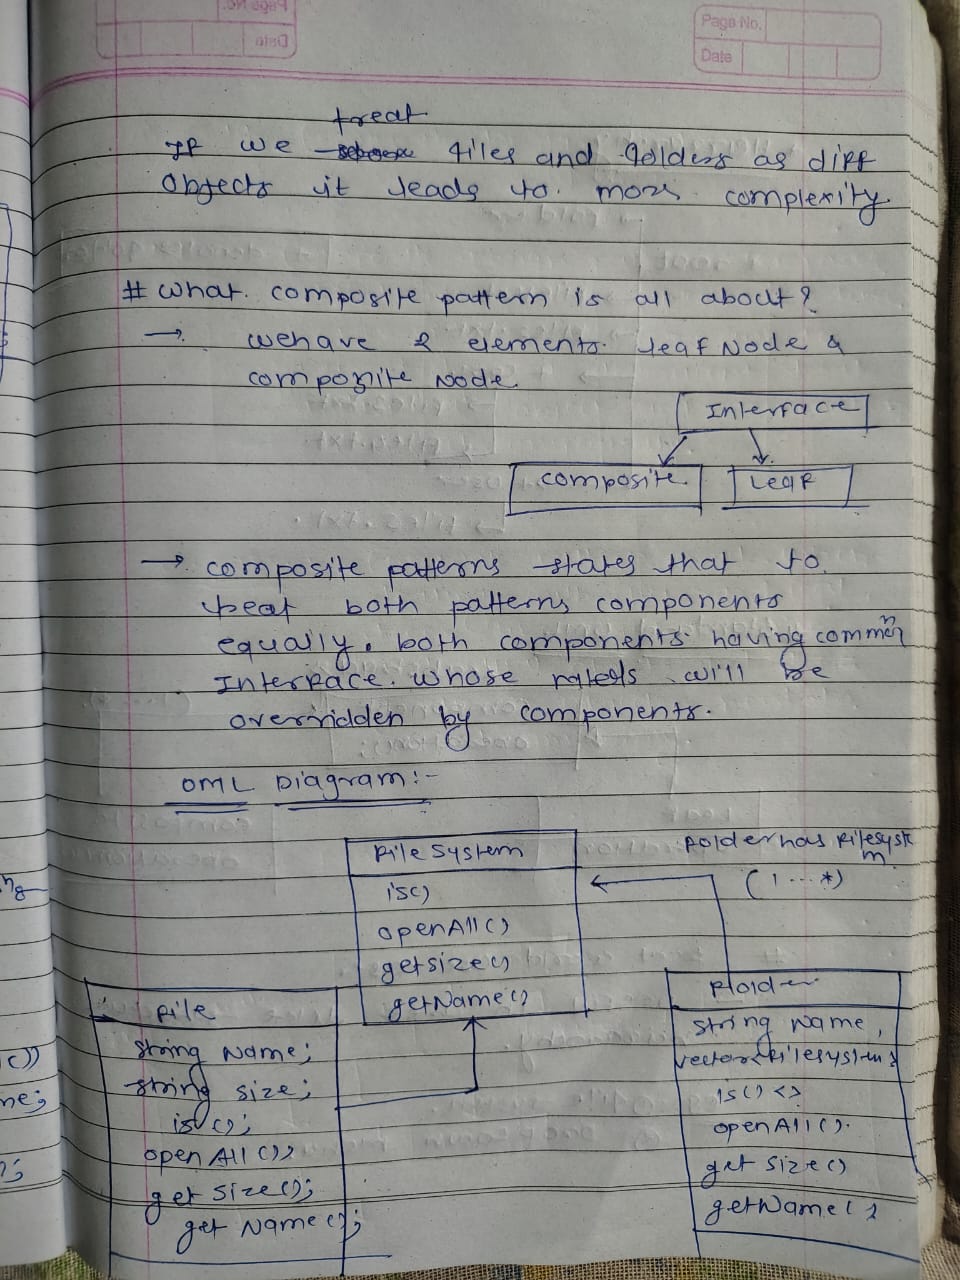 Page No.
Date
treat
If we files and folders as diff
Objects it leads to more complexity.
# What composite pattern is all about?
→ we have 2 elements. leaf Node &
composite Node.
Interface
composite Leaf
→ composite patterns states that to
treat both patterns components
equally. both components having common
Interface. whose will be
overridden by components.
UML Diagram:-
File System
ls()
openAll()
getsize()
getName()
Folder has Filesystem
(1...*)
File
String Name;
string size;
ls();
open All ();
get Size();
get Name();
Folder
String Name,
vector<Filesystem>
ls() <>
openAll().
get size()
getName()